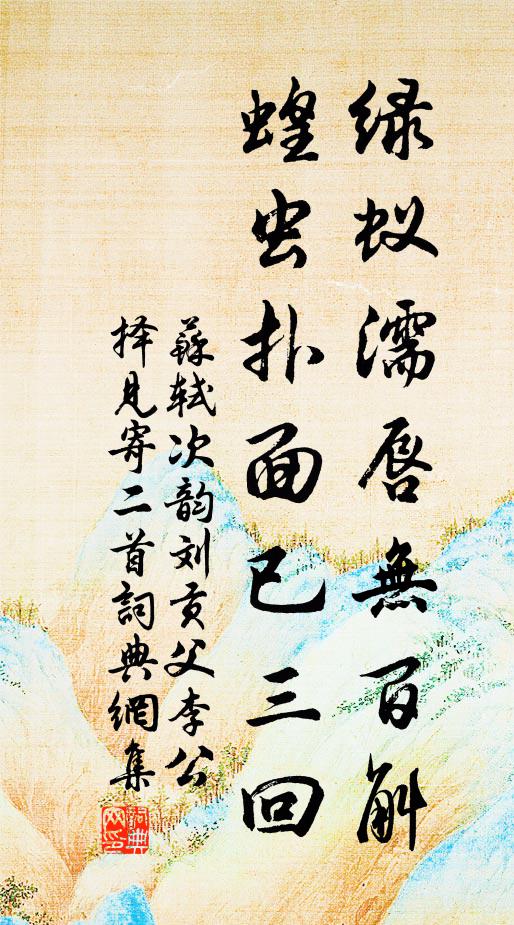 绿蚁濡唇無百斛
蝗虫扑面已三回
蘇轼次韵刘贡父李公
择見寄二首詞典網集
詞典
网印